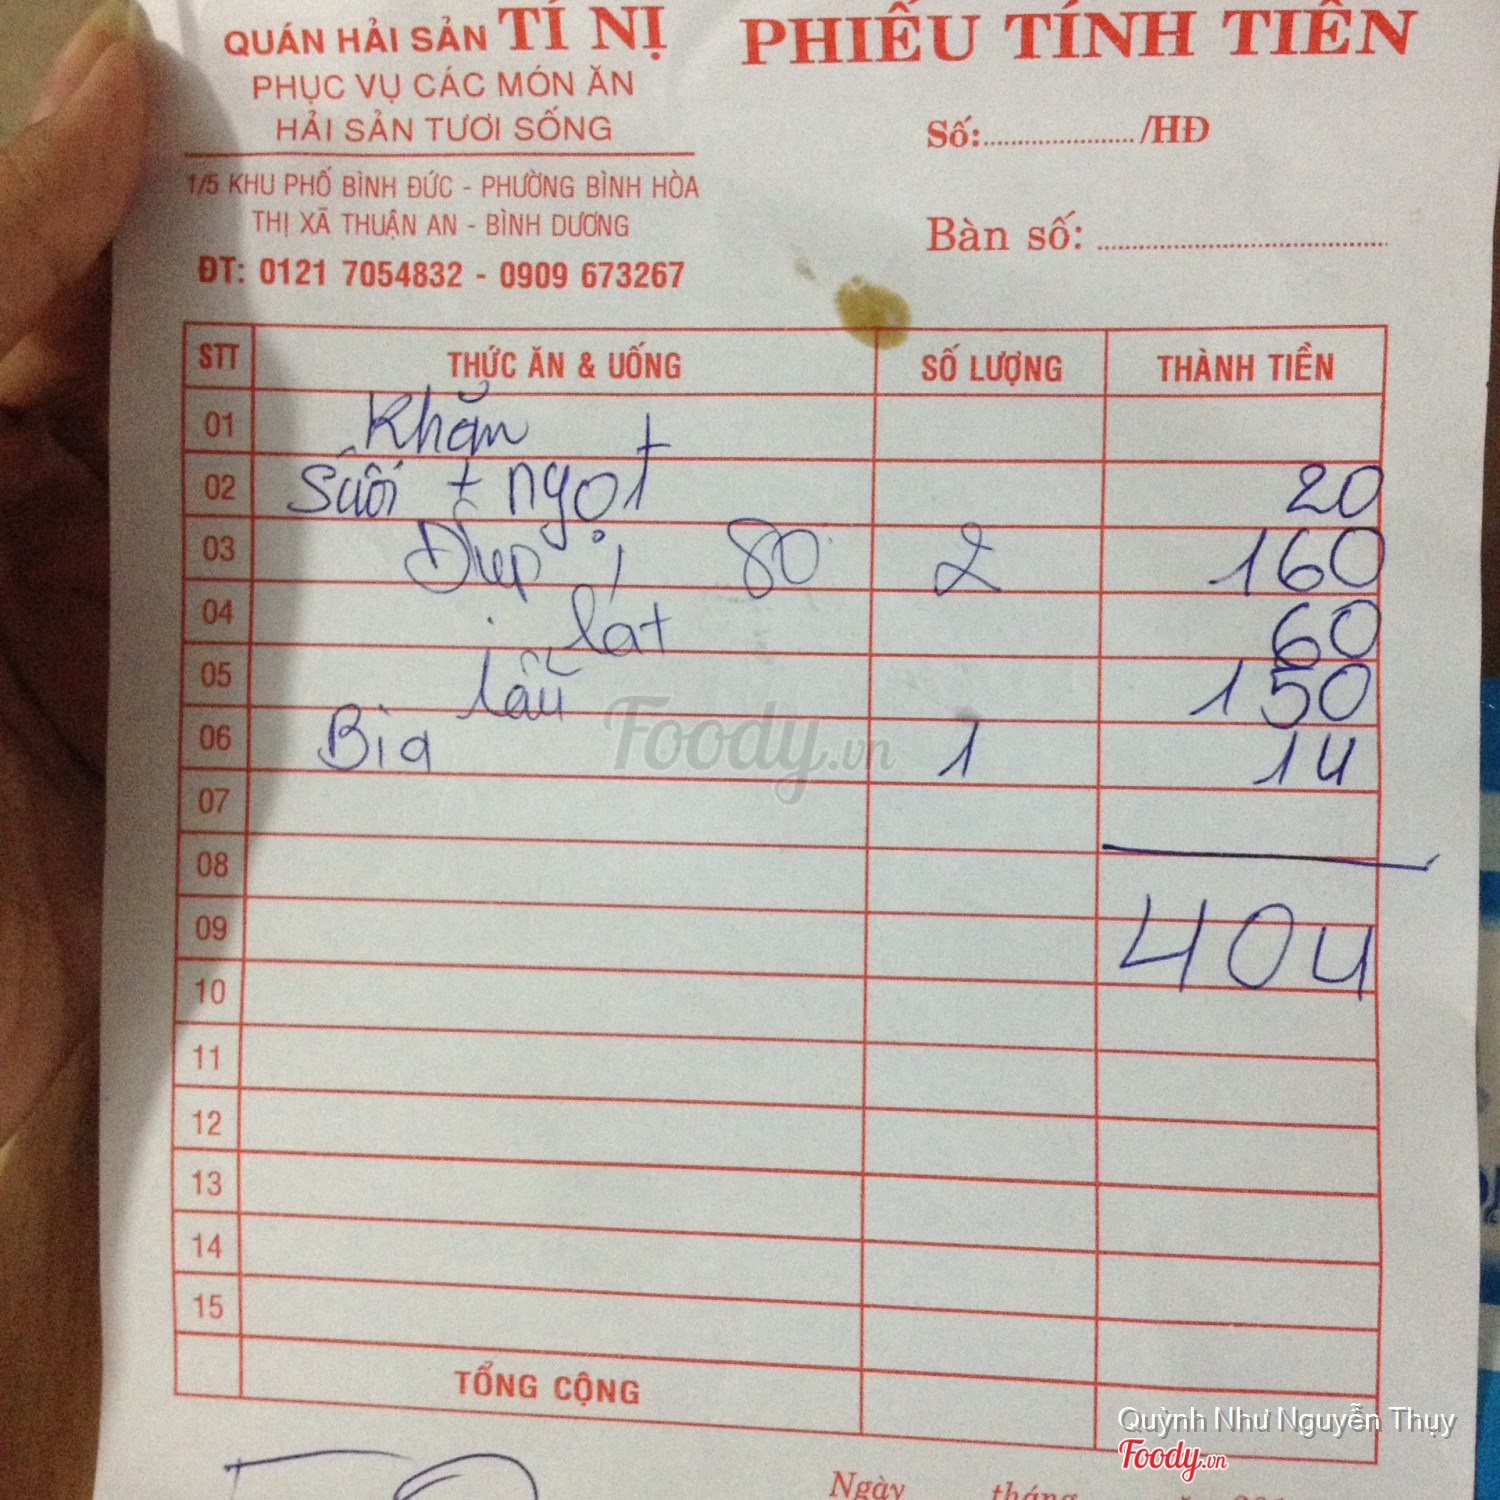 QUÁN HẢI SẢN TÍ NỊ
PHỤC VỤ CÁC MÓN ĂN
HẢI SẢN TƯƠI SỐNG
1/5 KHU PHỐ BÌNH ĐỨC - PHƯỜNG BÌNH HÒA
THỊ XÃ THUẬN AN - BÌNH DƯƠNG
ĐT: 0121 7054832 - 0909 673267
PHIẾU TÍNH TIỀN
Số:.................... /HĐ
Bàn số: ........................................
STT THỨC ĂN & UỐNG SỐ LƯỢNG THÀNH TIỀN
01 Khăn
02 Suối + ngọt 20
03 Điệp 80 2 160
04 lat 60
05 lẩu 150
06 Bia 1 14
07
08
09 404
10
11
12
13
14
15
TỔNG CỘNG
Ngày tháng
Foody.vn
Quỳnh Như Nguyễn Thụy
Foody.vn